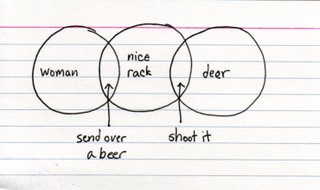 woman
nice
rack
deer
send over
a beer
shoot it